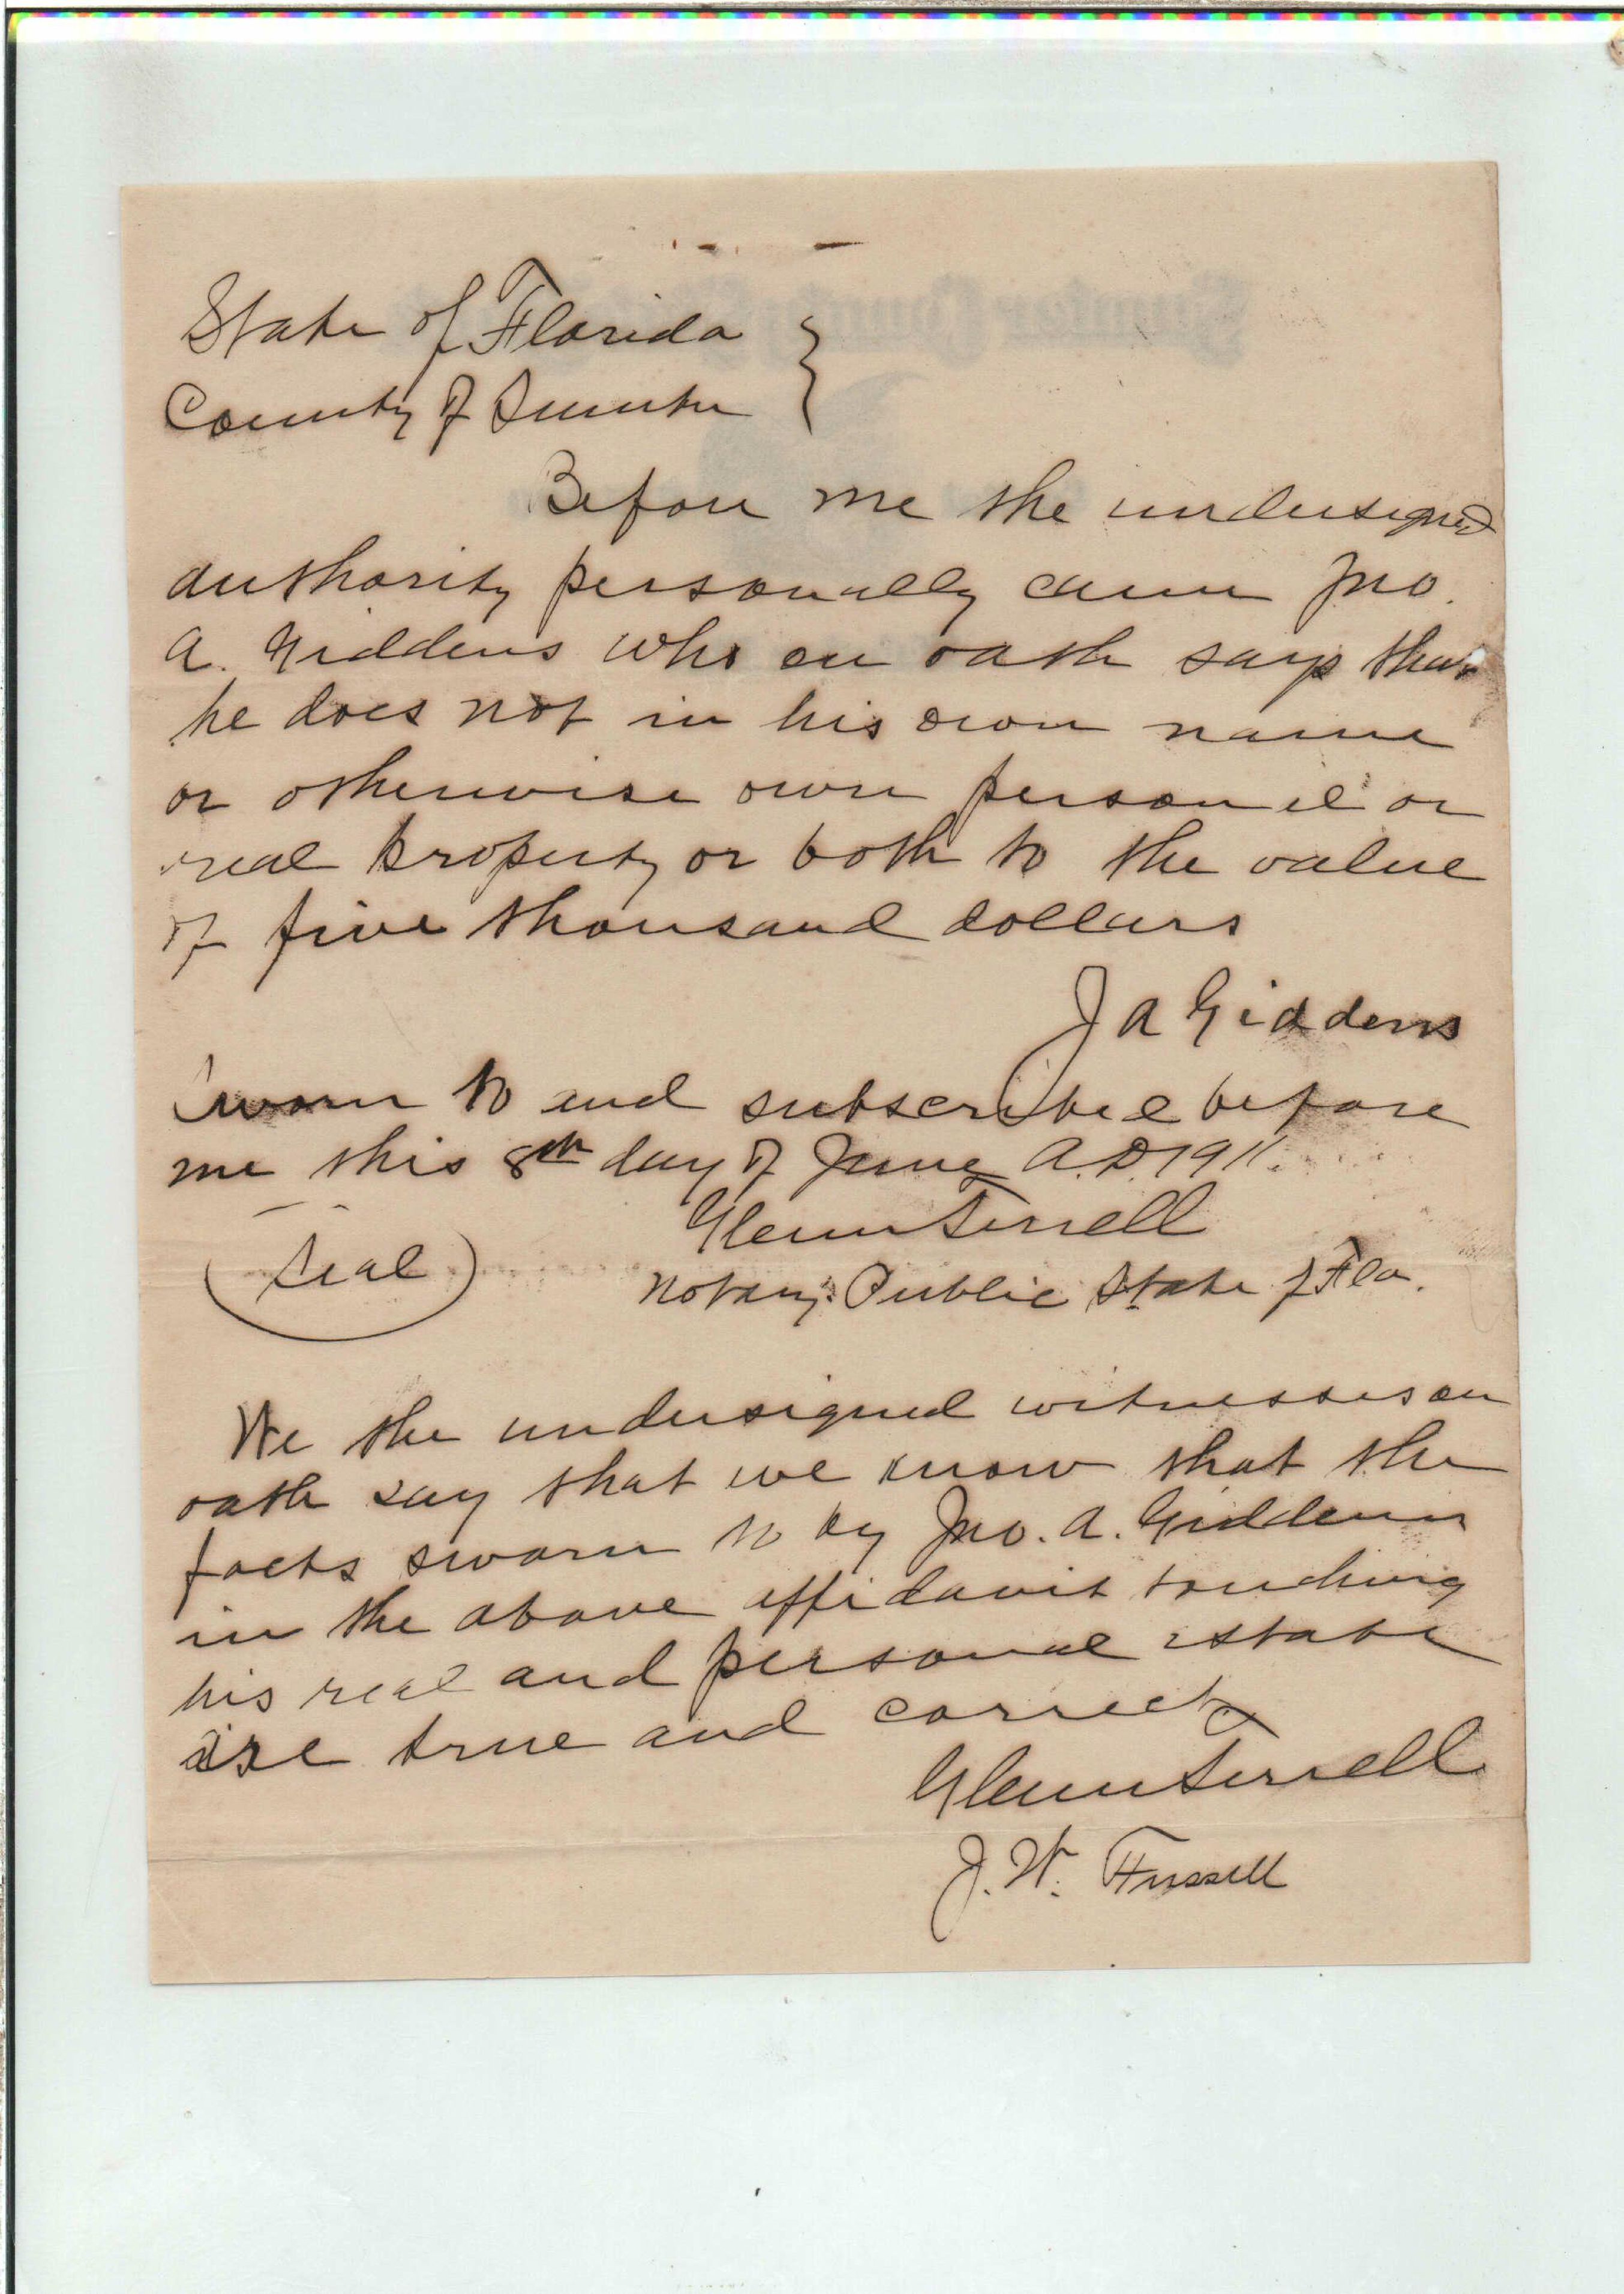 State of Florida }
County of Sumter
Before me the undersigned
authority personally came Jno.
A. Giddens who on oath says that
he does not in his own name
or otherwise own personal or
real property or both to the value
of five thousand dollars
J A Giddens
Sworn to and subscribed before
me this 8th day of June A.D. 1911.
Glenn Terrell
(Seal)
Notary Public State of Fla.
We the undersigned witnesses on
oath say that we know that the
facts sworn to by Jno. A. Giddens
in the above affidavit touching
his real and personal estate
are true and correct.
Glenn Terrell
J. W. Fussell